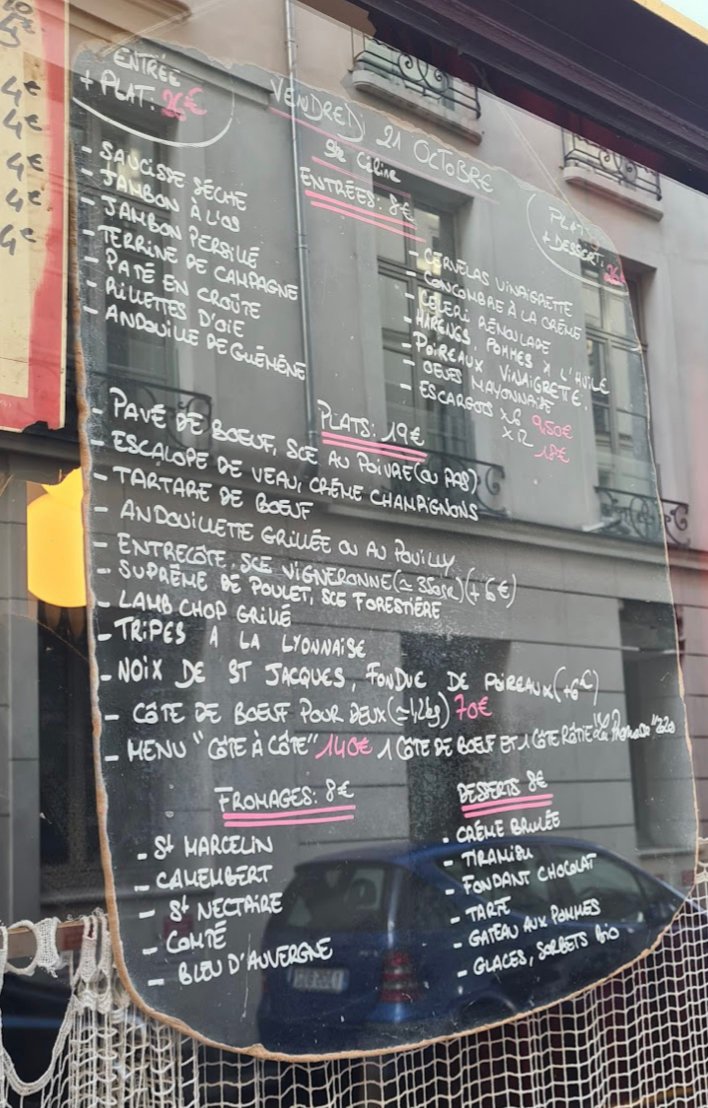 4€
4€
4€
4€
4€
ENTRÉE
+ PLAT: 26€
VENDREDI 21 OCTOBRE
Ste Céline
PLAT
+ DESSERT:
ENTRÉES: 8€
- SAUCISSE SÉCHÉ
- JAMBON À L'OS
- JAMBON PERSILLÉ
- TERRINE DE CAMPAGNE
- PATÉ EN CROÛTE
- RILLETTES D'OIE
- ANDOUILLE DE GUÉMÉNÉ
- CERVELAS VINAIGRETTE
- CONCOMBRE À LA CRÈME
- CÉLERI RÉMOULADE
- HARENGS, POMMES À L'HUILE
- POIREAUX VINAIGRETTE.
- OEUFS MAYONNAISE
- ESCARGOTS X6 9,50€
X12 18€
PLATS: 19€
- PAVÉ DE BOEUF, SCE AU POIVRE (OU PAS)
- ESCALOPE DE VEAU, CRÈME CHAMPIGNONS
- TARTARE DE BOEUF
- ANDOUILLETTE GRILLÉE OU AU POUILLY
- ENTRECÔTE, SCE VIGNERONNE (≃ 350gr) (+ 6€)
- SUPRÊME DE POULET, SCE FORESTIÈRE
- LAMB CHOP GRILLÉ
- TRIPES À LA LYONNAISE
- NOIX DE ST JACQUES, FONDUE DE POIREAUX (+6€)
- CÔTE DE BOEUF POUR DEUX (≃1,2kg) 70€
- MENU "CÔTE À CÔTE" 140€ 1 CÔTE DE BOEUF ET 1 CÔTE RÔTIE 2020
FROMAGES: 8€
- St MARCELIN
- CAMEMBERT
- St NECTAIRE
- COMTÉ
- BLEU D'AUVERGNE
DESSERTS 8€
- CRÈME BRULÉE
- TIRAMISU
- FONDANT CHOCOLAT
- TARTE
- GATEAU AUX POMMES
- GLACES, SORBETS BIO